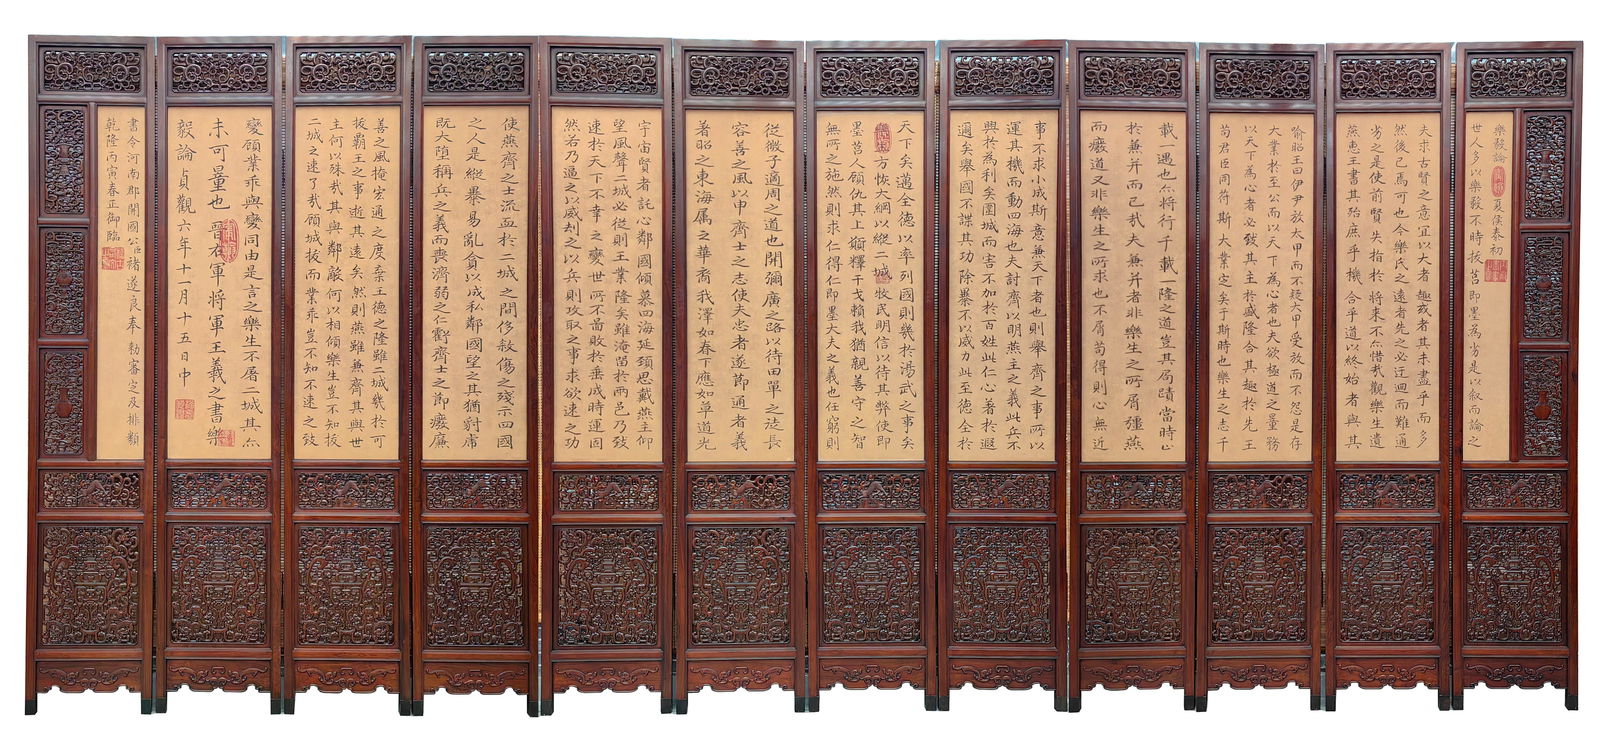 樂毅論 夏侯泰初
世人多以樂毅不時拔莒即墨為劣是以叙而論之
夫求古賢之意宜以大者趣或者其未盡乎而多
然後已焉可也今樂氏之遠者先之必迂迴而難通
劣之是使前賢失指於將來不亦惜哉觀樂生遺
燕惠王書其殆庶乎機合乎道以終始者與其
喻昭王曰伊尹放太甲而不疑大甲受放而不怨是存
大業於至公而以天下為心者也夫欲極道之量務
以天下為心者必致其主於盛隆合其趣於先王
苟君臣同符斯大業定矣于斯時也樂生之志千
載一遇也亦將行千載一隆之道豈其局蹟當時心
於兼并而已哉夫兼并者非樂生之所屑彊燕
而廢道又非樂生之所求也不屑苟得則心無近
事不求小成斯意兼天下者也則舉齊之事所以
運其機而動四海也夫討齊以明燕主之義此兵不
興於為利矣圍城而害不加於百姓此仁心著於遐
邇矣舉國不謀其功除暴不以威力此至德全於
天下矣邁全德以率列國則幾於湯武之事矣
方恢大綱以縱二城牧民明信以待其弊使即
墨莒人顧仇其上願釋干戈賴我猶親善守之智
無所之施然則求仁得仁即墨大夫之義也任窮則
從微子適周之道也開彌廣之路以待田單之徒長
容善之風以申齊士之志使夫忠者遂節通者義
著昭之東海屬之華裔我澤如春下應如草道光
宇宙賢者託心鄰國傾慕四海延頸思戴燕主仰
望風聲二城必從則王業隆矣雖淹留於兩邑乃致
速於天下不幸之變世所不啚敗於垂成時運固
然若乃逼之以威劫之以兵則攻取之事求欲速之功
使燕齊之士流血於二城之間侈殺傷之殘示四國
之人是縱暴易亂貪以成私鄰國望之其猶豺虎
既大墮稱兵之義而喪濟弱之仁虧齊士之節廢廉
善之風掩宏通之度棄王德之隆雖二城幾於可
拔霸王之事逝其遠矣然則燕雖兼齊其與世
主何以殊哉其與鄰敵何以相傾樂生豈不知拔
二城之速了哉顧城拔而業乖豈不知不速之致
變顧業乖與變同由是言之樂生不屠二城其亦
未可量也 晉右軍將軍王羲之書樂
毅論貞觀六年十一月十五日中
書令河南郡開國公臣褚遂良奉敕審定及排類
乾隆丙寅春正御臨